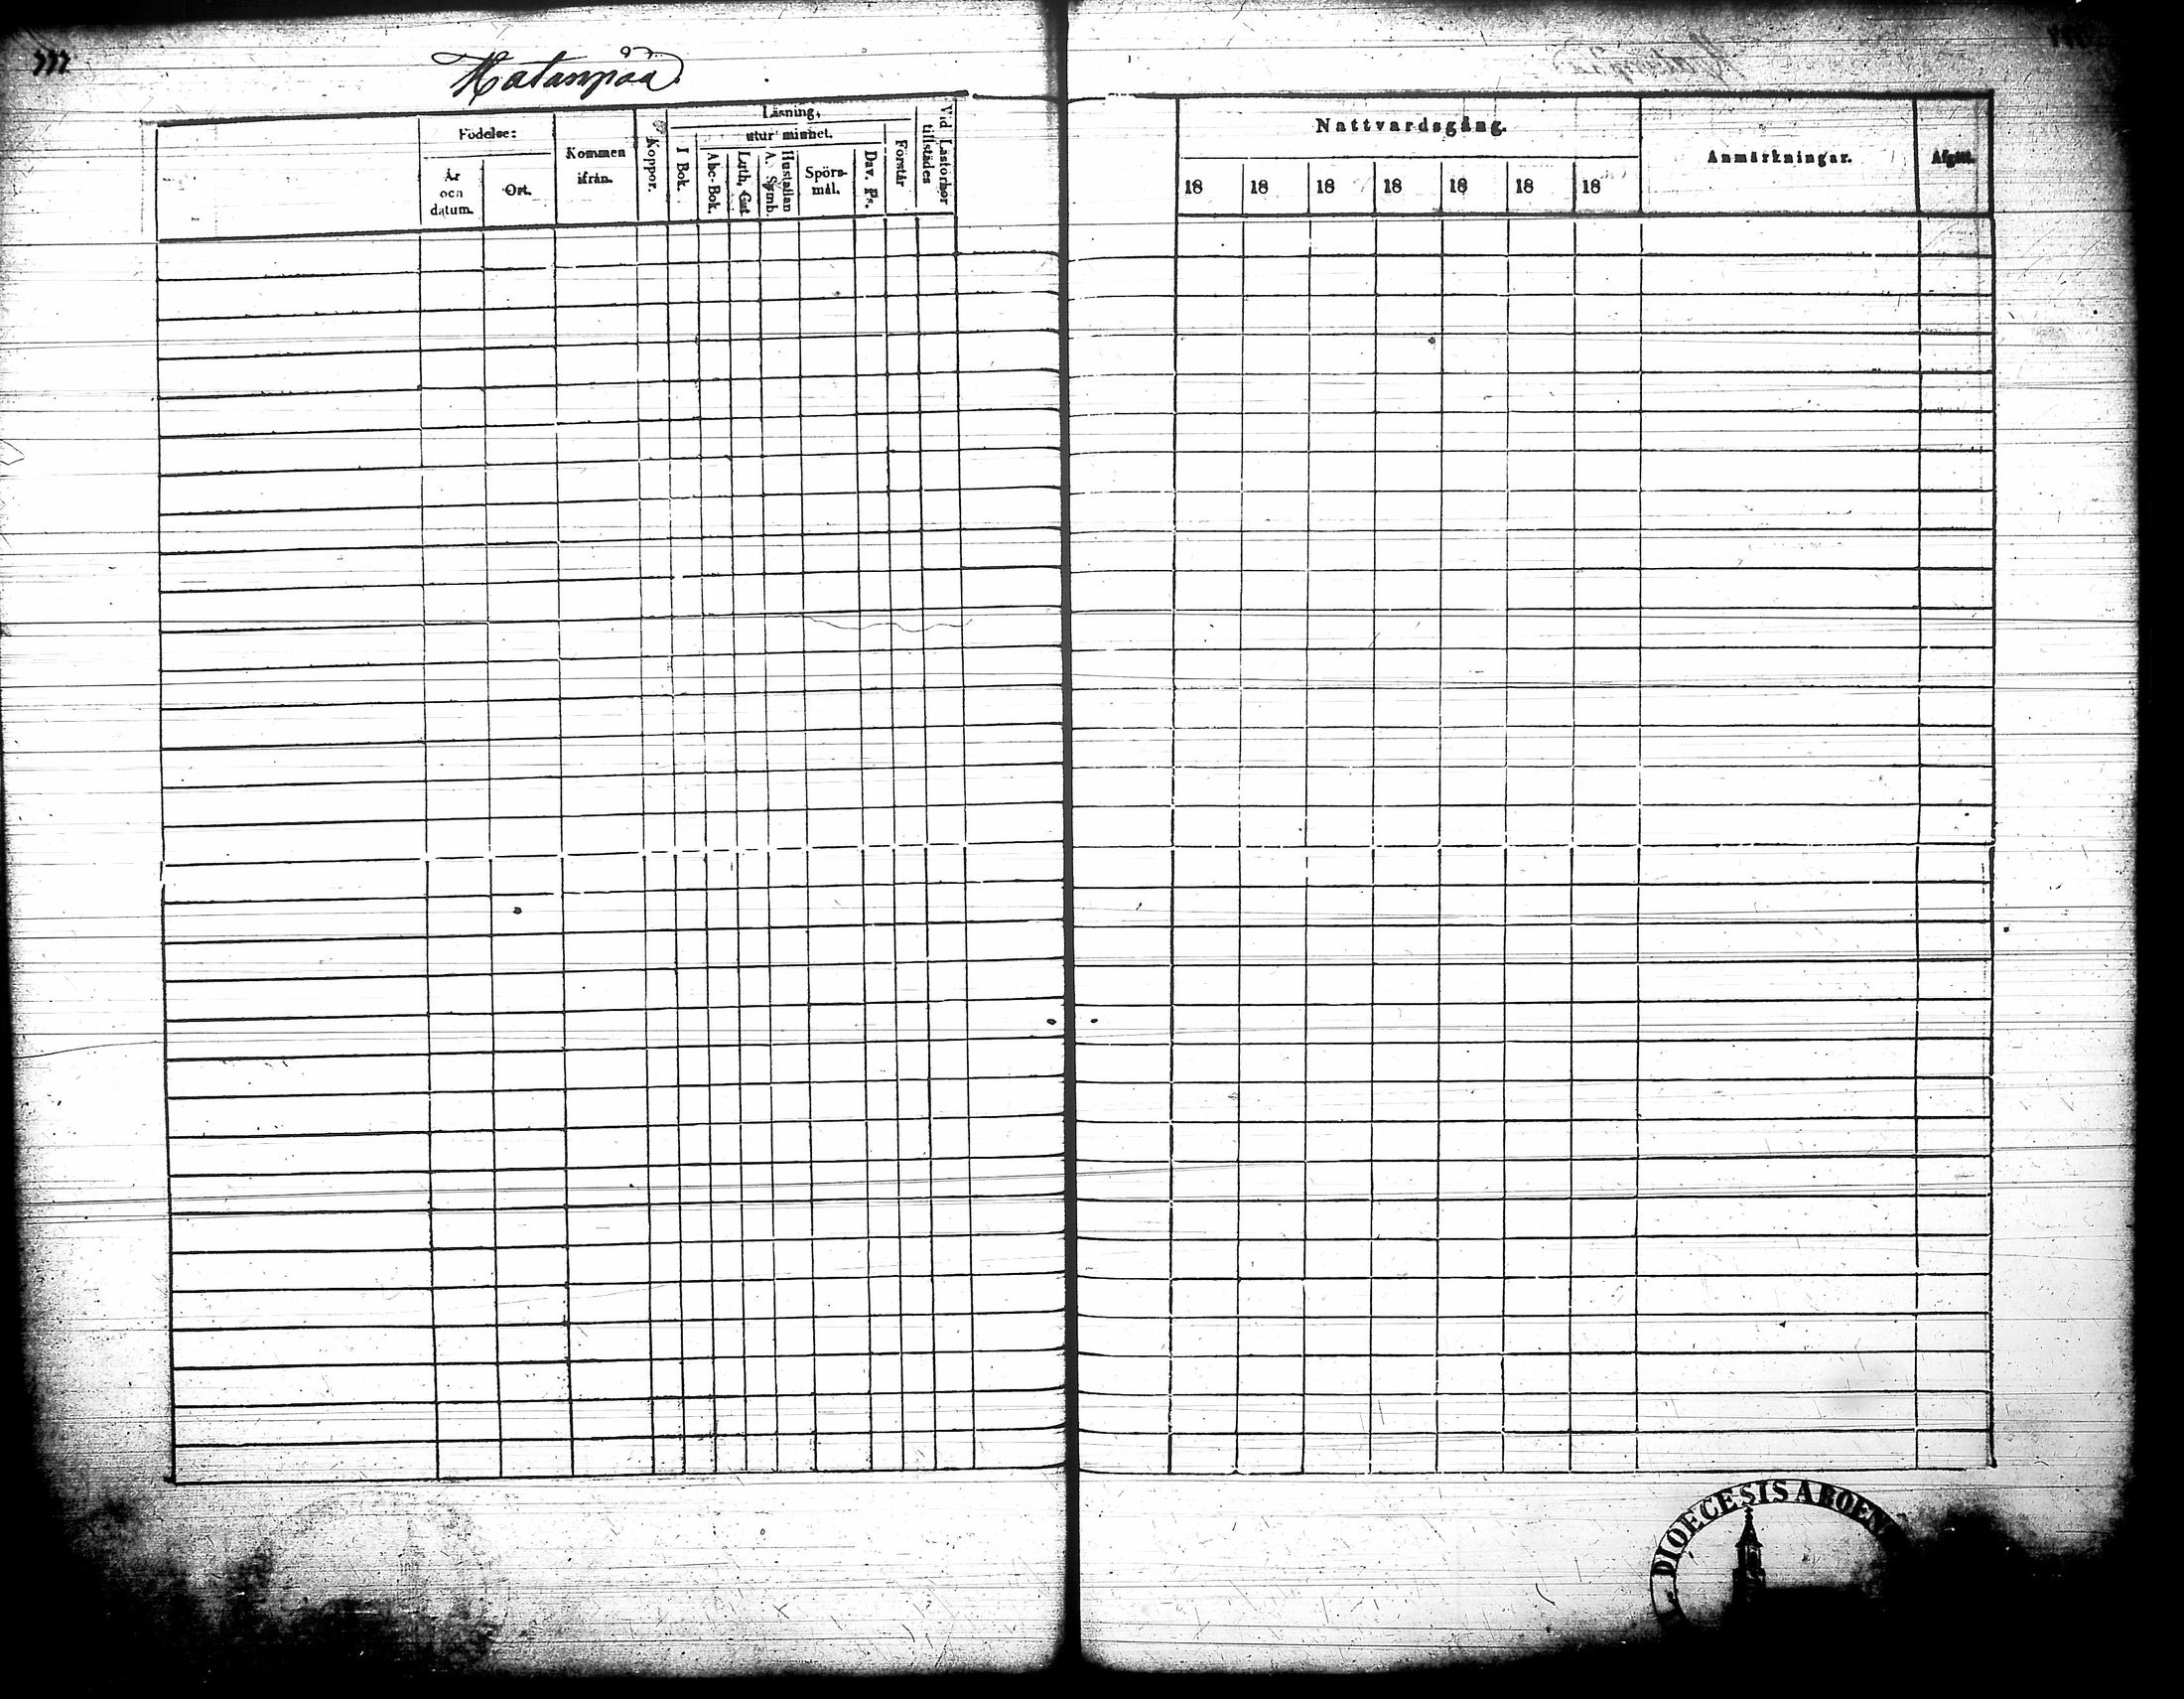 777
Hatanpää
Födelse:
År
och
datum.
Ort.
Kommen
ifrån.
Koppor.
Läsning,
utur minnet.
I Bok.
Abc-Bok.
Luth. Cat
A. Symb.
Hustaflan
Spörs-
mål.
Dav. Ps.
Förstår
Vid Läsförhör
tillstädes
Nattvardsgång.
18 18 18 18 18 18 18
Anmärkningar.
Afgått.
DIOECESIS ABOEN